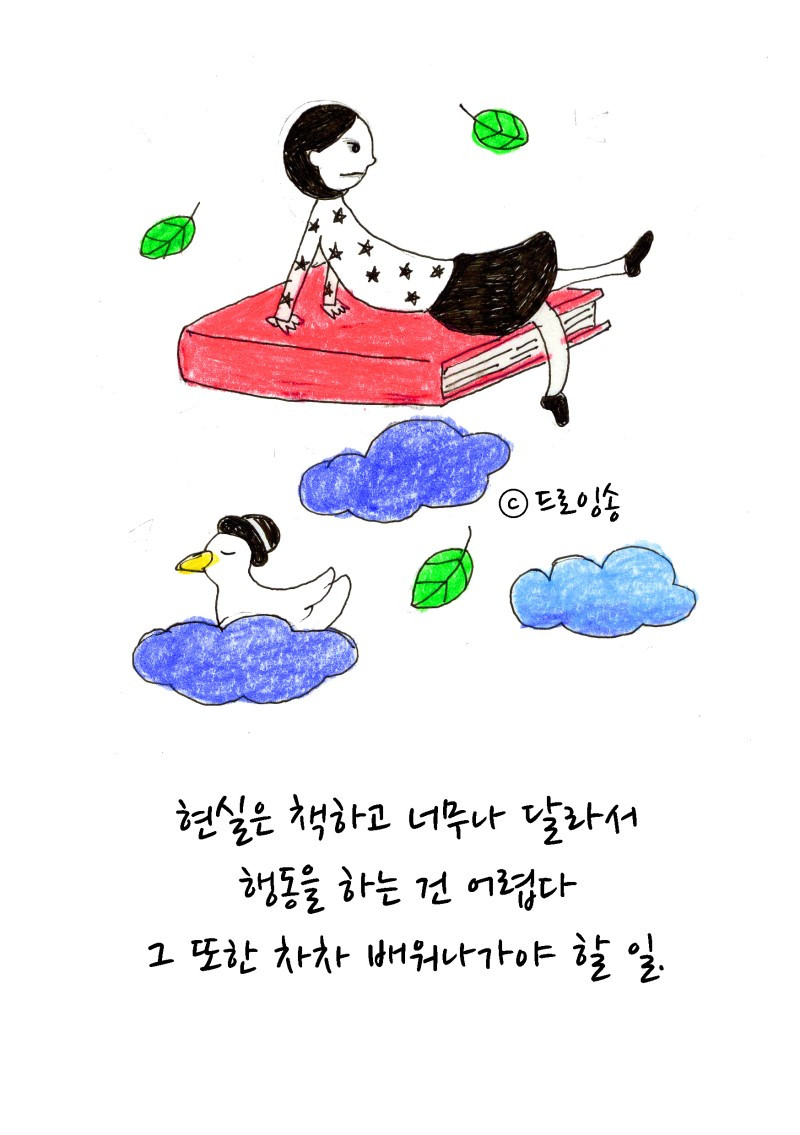 ⓒ 드로잉송
현실은 책하고 너무나 달라서
행동을 하는 건 어렵다
그 또한 차차 배워나가야 할 일.